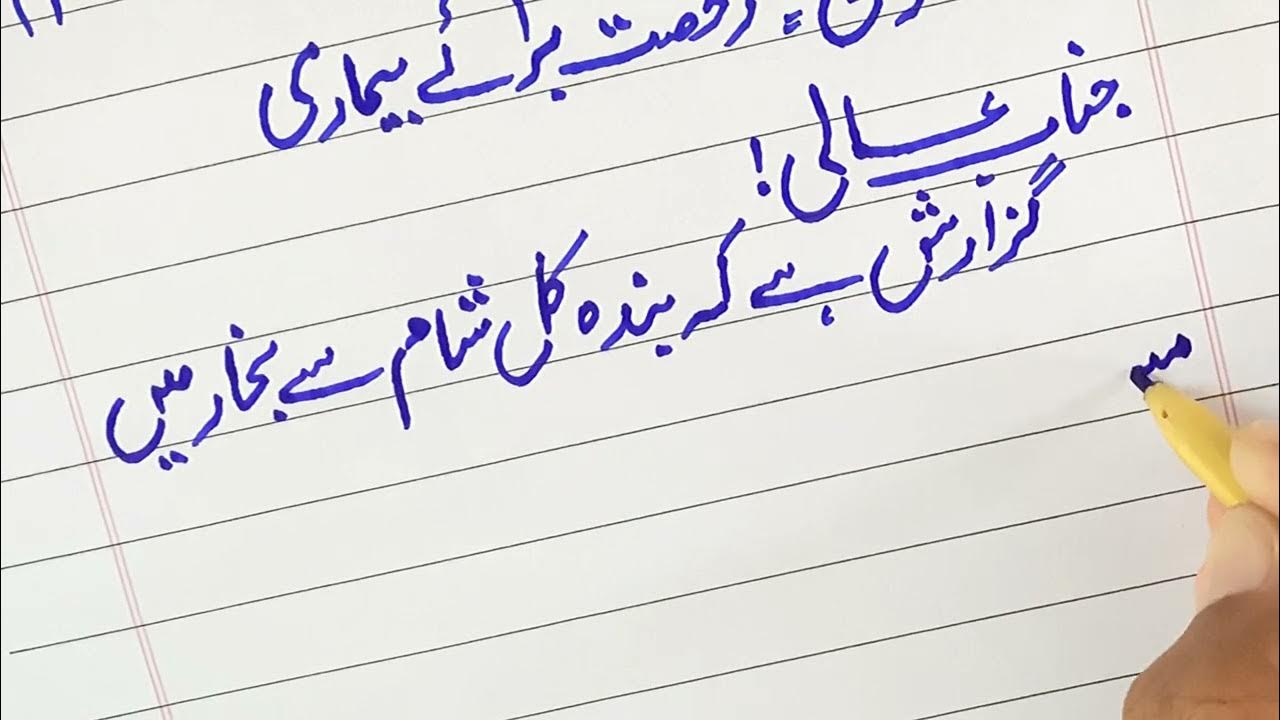 رخصت برائے بیماری
جناب عالی!
گزارش ہے کہ بندہ کل شام سے بخار میں